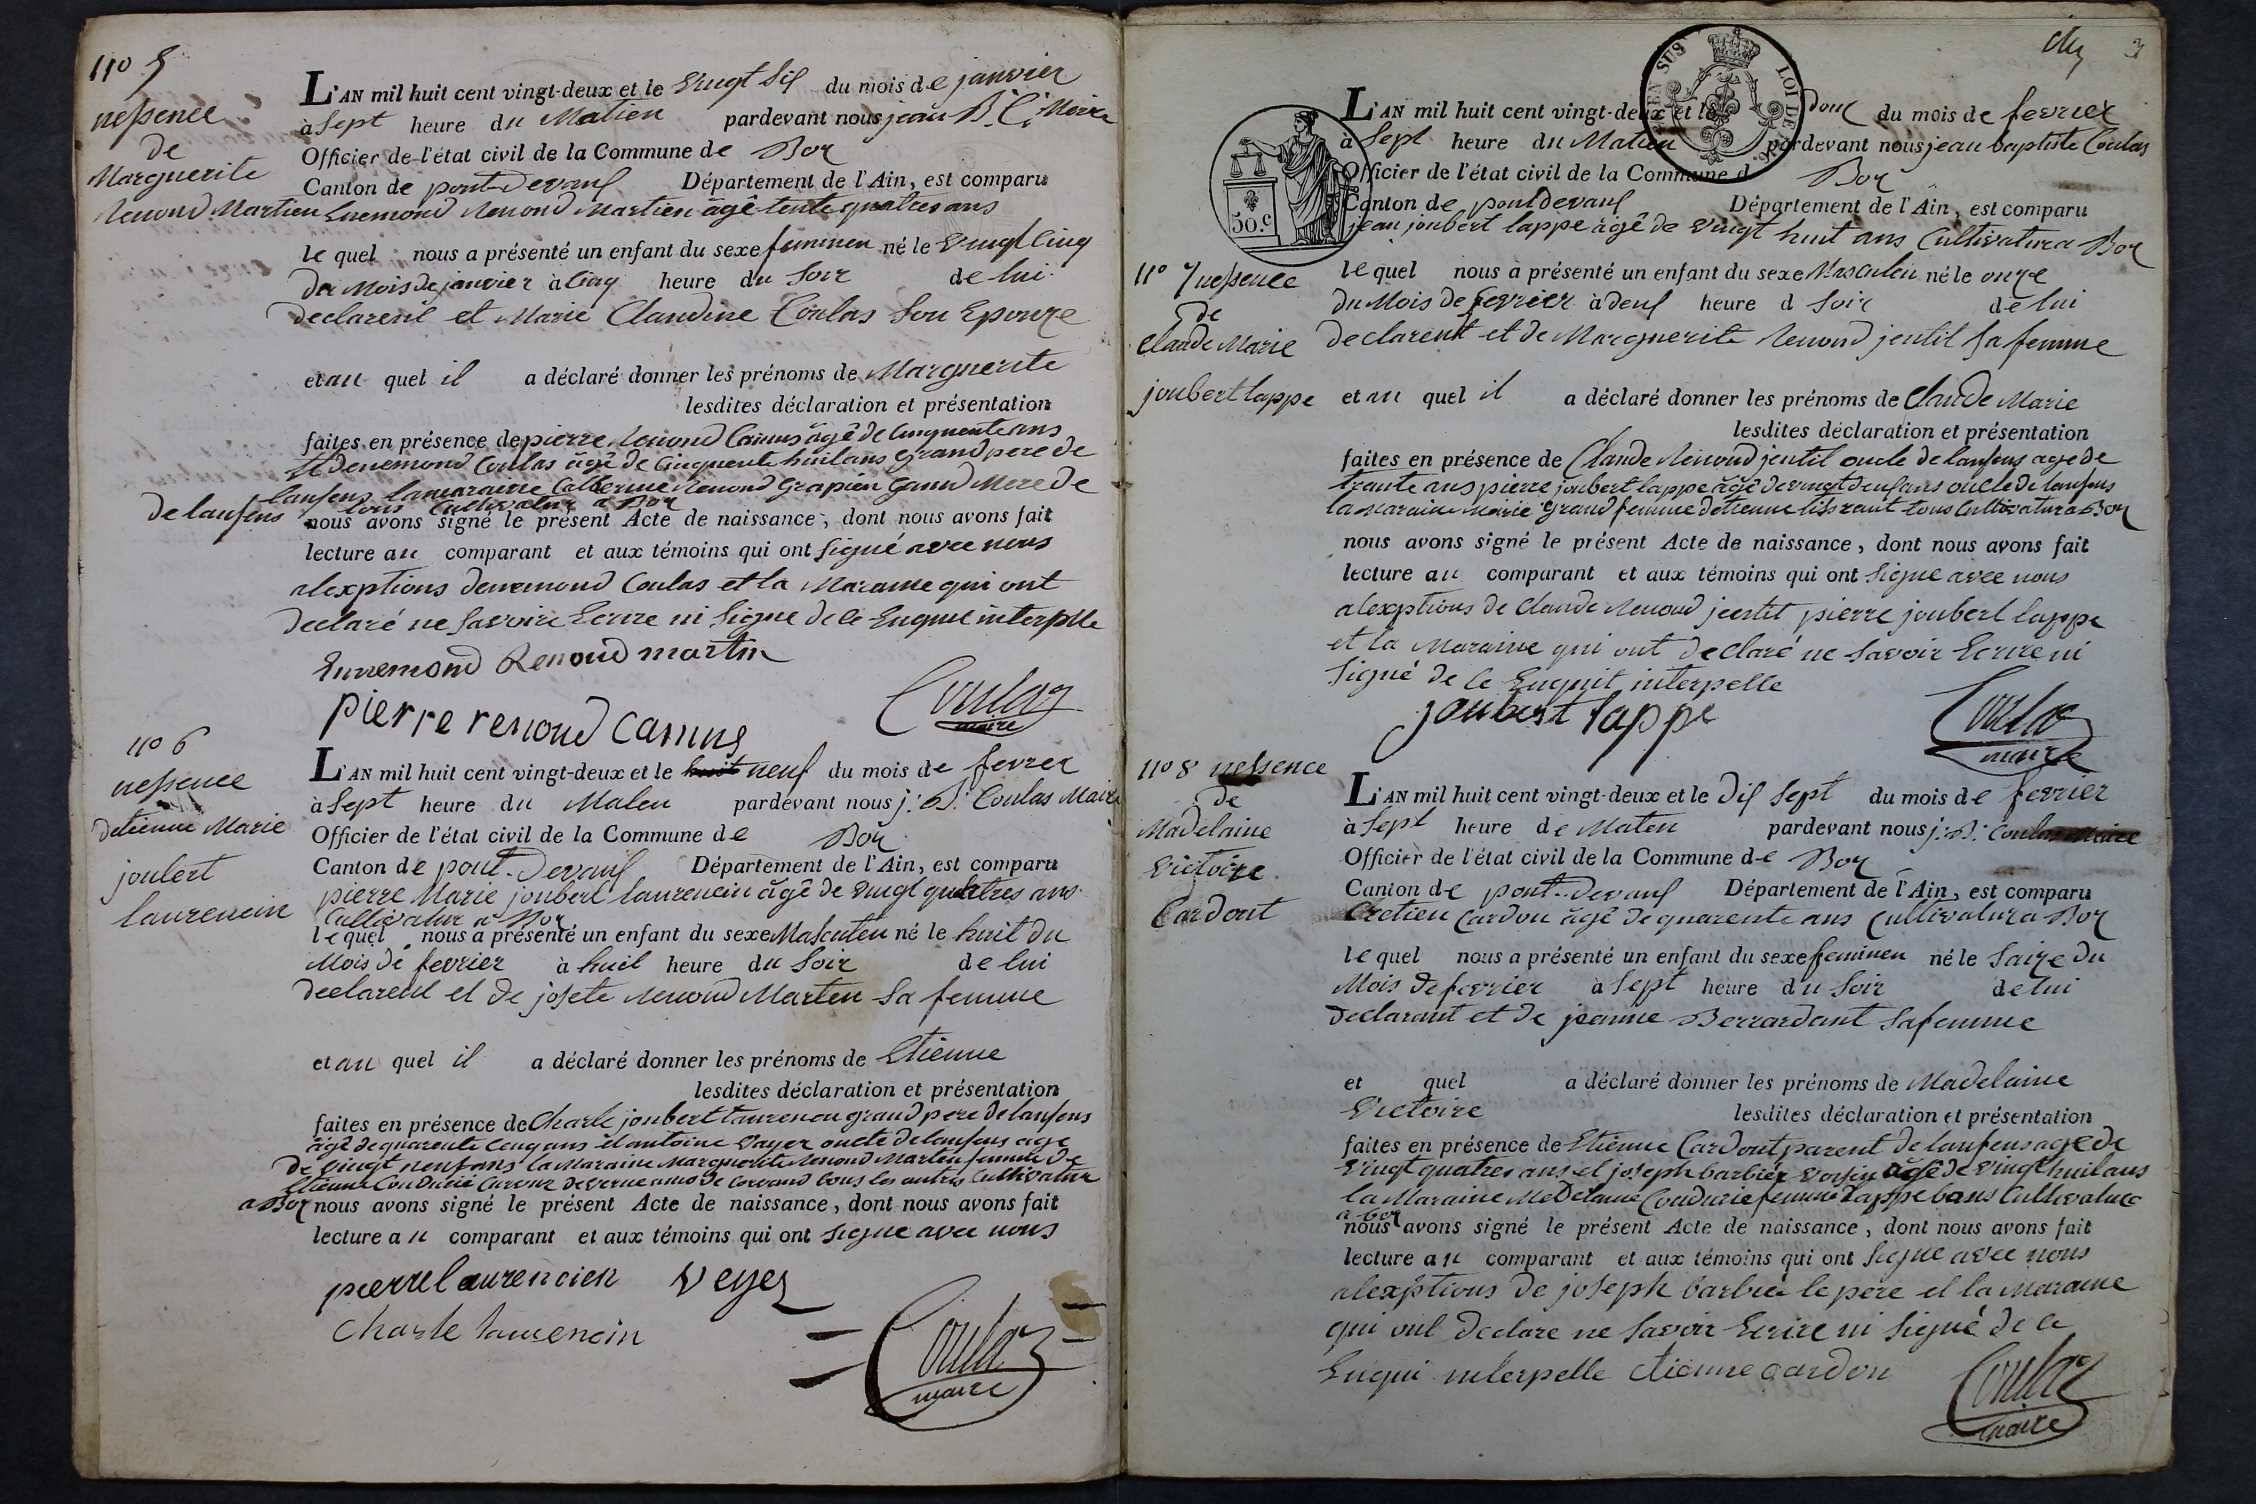 no 5
nessence
de
Marguerite
Renond Martien
L'AN mil huit cent vingt-deux et le vingt six du mois de janvier
à Sept heure du Matien pardevant nous jean B. C. Maire
Officier de l'état civil de la Commune de Boz
Canton de pont-Devaux Département de l'Ain, est comparu
Enemond Renond Martien âgé tente quatres ans
le quel nous a présenté un enfant du sexe feminen né le vingt Cinq
du Mois de janvier à Cinq heure du Soir de lui
declarent et Marie Claudine Coulas Son Epouze
et au quel il a déclaré donner les prénoms de Marguerite
lesdites déclaration et présentation
faites en présence de pierre Renond Camus âgé de Cinquente ans
et denemond Coulas âgé de Cinquente huit ans grand pere de
lanfens la maraine Catherine Renond Grapien Grand Mere de
de lanfens tous Cultivatur a Boz
nous avons signé le présent Acte de naissance, dont nous avons fait
lecture au comparant et aux témoins qui ont signé avec nous
alexptions denemond Coulas et la Maraine qui ont
declaré ne Savoire Ecrire ni Signe de ce Enquie interpelle
Ennemond Renoud martin
pierre renoud camus
Coulas
maire
no 6
nessence
detienne Marie
joubert
laurencin
L'AN mil huit cent vingt-deux et le huit neuf du mois de fevrer
à Sept heure du Maten pardevant nous j. B. Coulas Maire
Officier de l'état civil de la Commune de Boz
Canton de pont-Devaux Département de l'Ain, est comparu
pierre Marie joubert laurencin âgé de vingt quatres ans
Cultivatur a Boz
le quel nous a présenté un enfant du sexe Masculen né le huit du
Mois de fevrier à huit heure du Soir de lui
declarent et de josete Renond Marten Sa femme
et au quel il a déclaré donner les prénoms de Etienne
lesdites déclaration et présentation
faites en présence de Charle joubert laurencin grand pere de lanfens
âgé de quarente Cenq ans et antoine Vayer oncle de lanfens age
de vingt neuf ans la Maraine Marguerite Renond Marten femme de
Etienne tous les autres Cultivatur
a Boz nous avons signé le présent Acte de naissance, dont nous avons fait
lecture au comparant et aux témoins qui ont signe avec nous
pierre laurencien Veyer
Charle laurencin
Coulas
maire
3
SUS
LOI DE
50.c
L'AN mil huit cent vingt-deux et le douz du mois de fevrier
à Sept heure du Maten pardevant nous jean baptiste Coulas
Officier de l'état civil de la Commune d Boz
Canton de pont devaux Département de l'Ain, est comparu
jean joubert lappe âgé de vingt huit ans Cultivatur a Boz
no 7 nessence
de
Claude Marie
joubert lappe
le quel nous a présenté un enfant du sexe Masculen né le onze
du Mois de fevrier à deux heure d Soir de lui
declarent et de Marguerite Renond jentil Sa femme
et au quel il a déclaré donner les prénoms de Claude Marie
lesdites déclaration et présentation
faites en présence de Claude Renond jentil oncle de lanfens age de
trante ans pierre joubert lappe âgé de vingt deux ans oncle de lanfens
la Maraine Marie Grand femme detienne tissrant tous Cultivatur a Boz
nous avons signé le présent Acte de naissance, dont nous avons fait
lecture au comparant et aux témoins qui ont Signe avec nous
alexptions de Claude Renond jentil pierre joubert lappe
et la Maraine qui ont declaré ne Savoir Ecrire ni
Signé de ce Enquit interpelle
joubert lappe
Coulas
maire
no 8 nessence
de
Madelaine
Victoire
Cardont
L'AN mil huit cent vingt-deux et le dix Sept du mois de fevrier
à Sept heure de Maten pardevant nous j. B. Coulas Maire
Officier de l'état civil de la Commune de Boz
Canton de pont-devaux Département de l'Ain, est comparu
Cretien Cardon âgé de quarente ans Cultivatur a Boz
le quel nous a présenté un enfant du sexe feminen né le Saize du
Mois de fevrier à Sept heure du Soir de lui
declarant et de jeanne Berrardant Sa femme
et quel a déclaré donner les prénoms de Madelaine
Victoire lesdites déclaration et présentation
faites en présence de Etienne Cardont parent de lanfens age de
vingt quatres ans et joseph barbier voisin âgé de vingt huit ans
la Maraine Medelaine Condurie femme Cultivatur
a boz
nous avons signé le présent Acte de naissance, dont nous avons fait
lecture au comparant et aux témoins qui ont Signe avec nous
alexptions de joseph barbier le pere et la Maraine
qui ont declare ne Savoir Ecrire ni Signé de ce
Enqui interpelle etienne cardon
Coulas
maire